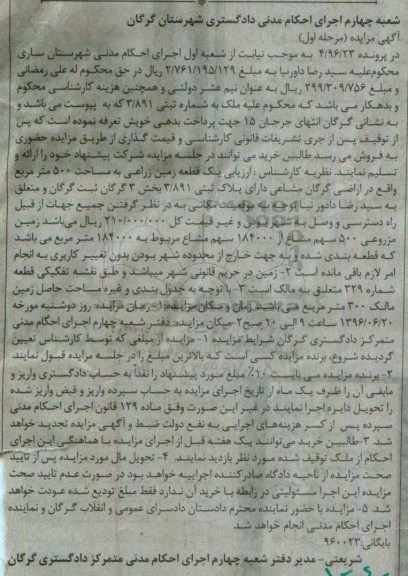 شعبه چهارم اجرای احکام مدنی دادگستری شهرستان گرگان
آگهی مزایده (مرحله اول)
در پرونده ۴/۹۶/۲۳ به موجب نیابت از شعبه اول اجرای احکام مدنی شهرستان ساری
محکوم‌علیه سید رضا داورنیا به مبلغ ۲/۷۶۱/۱۹۵/۱۲۹ ریال در حق محکوم له علی رمضانی
و مبلغ ۲۹۹/۳۰۹/۷۵۶ ریال به عنوان نیم عشر دولتی و همچنین هزینه کارشناسی محکوم
و بدهکار می باشد که محکوم علیه ملک به شماره ثبتی ۳/۸۹۱ که به پیوست می باشد و
به نشانی گرگان انتهای جرجان ۱۵ جهت پرداخت بدهی خویش تعرفه نموده است که پس
از توقیف پس از جری تشریفات قانونی کارشناسی و قیمت گذاری از طریق مزایده حضوری
به فروش می رسد طالبین خرید می توانند در جلسه مزایده شرکت پیشنهاد خود را ارائه و
تسلیم نمایند. نظریه کارشناس: ارزیابی یک قطعه زمین زراعی به مساحت ۵۰۰ متر مربع
واقع در اراضی گرگان مشاعی دارای پلاک ثبتی ۳/۸۹۱ بخش ۳ گرگان ثبت گرگان و متعلق
به سید رضا دادور نیا توجه به موقعیت مکانی به در نظر گرفتن جمیع جهات از قبیل
راه دسترسی و وصل به شهر بودن و غیر قیمت کل ۲۱۰/۰۰۰/۰۰۰ ریال می‌باشد زمین
مزروعی ۵۰۰ سهم مشاع از ۱۸۴۰۰۰ سهم مشاع مربوط به ۱۸۴۰۰۰ متر مربع می باشد
که قطعه بندی شده و به جهت خارج از محدوده شهر بودن بدون تغییر کاربری به انجام
امر لازم باقی مانده است ۲- زمین در حریم قانونی شهر میباشد و طبق نقشه تفکیکی قطعه
شماره ۳۲۹ متعلق به مالک است ۳- با توجه به جدول بندی و غیره مساحت حاصل زمین
مالک ۳۰۰ متر مربع می باشد. زمان و مکان مزایده: ۱- زمان مزایده: روز دوشنبه مورخه
۱۳۹۶/۰۶/۲۰ ساعت ۹ الی ۱۰ صبح ۲- مکان مزایده: دفتر شعبه چهارم اجرای احکام مدنی
متمرکز دادگستری گرگان شرایط مزایده ۱- مزایده از مبلغی که توسط کارشناس تعیین
گردیده شروع، برنده مزایده کسی است که بالاترین مبلغ را در جلسه مزایده قبول نمایند.
۲- برنده مزایده می بایست ۱۰٪ مبلغ مورد پیشنهاد را نقداً به حساب دادگستری واریز و
مابقی آن را ظرف یک ماه از تاریخ اجرای مزایده به حساب سپرده واریز و قبض واریز شده
را تحویل دایره اجرا نمایند در غیر این صورت وفق ماده ۱۲۹ قانون اجرای احکام مدنی
سپرده پس از کسر هزینه‌های اجرایی به نفع دولت ضبط و آگهی مزایده تجدید خواهد
شد. ۳- طالبین خرید می‌توانند یک هفته قبل از اجرای مزایده با هماهنگی این اجرای
احکام از ملک توقیف شده مورد نظر بازدید نمایند. ۴- تحویل مال مورد مزایده پس از تایید
صحت مزایده از ناحیه دادگاه صادرکننده اجراییه خواهد بود در صورت عدم تایید صحت
مزایده این اجرا مسئولیتی در رابطه با خرید آن ندارد فقط مبلغ تودیع شده عودت خواهد
شد. ۵- مزایده با حضور نماینده محترم دادستان دادسرای عمومی و انقلاب گرگان و نماینده
اجرای احکام مدنی انجام خواهد شد.
بایگانی: ۹۶۰۰۲۳
شریعتی- مدیر دفتر شعبه چهارم اجرای احکام مدنی متمرکز دادگستری گرگان